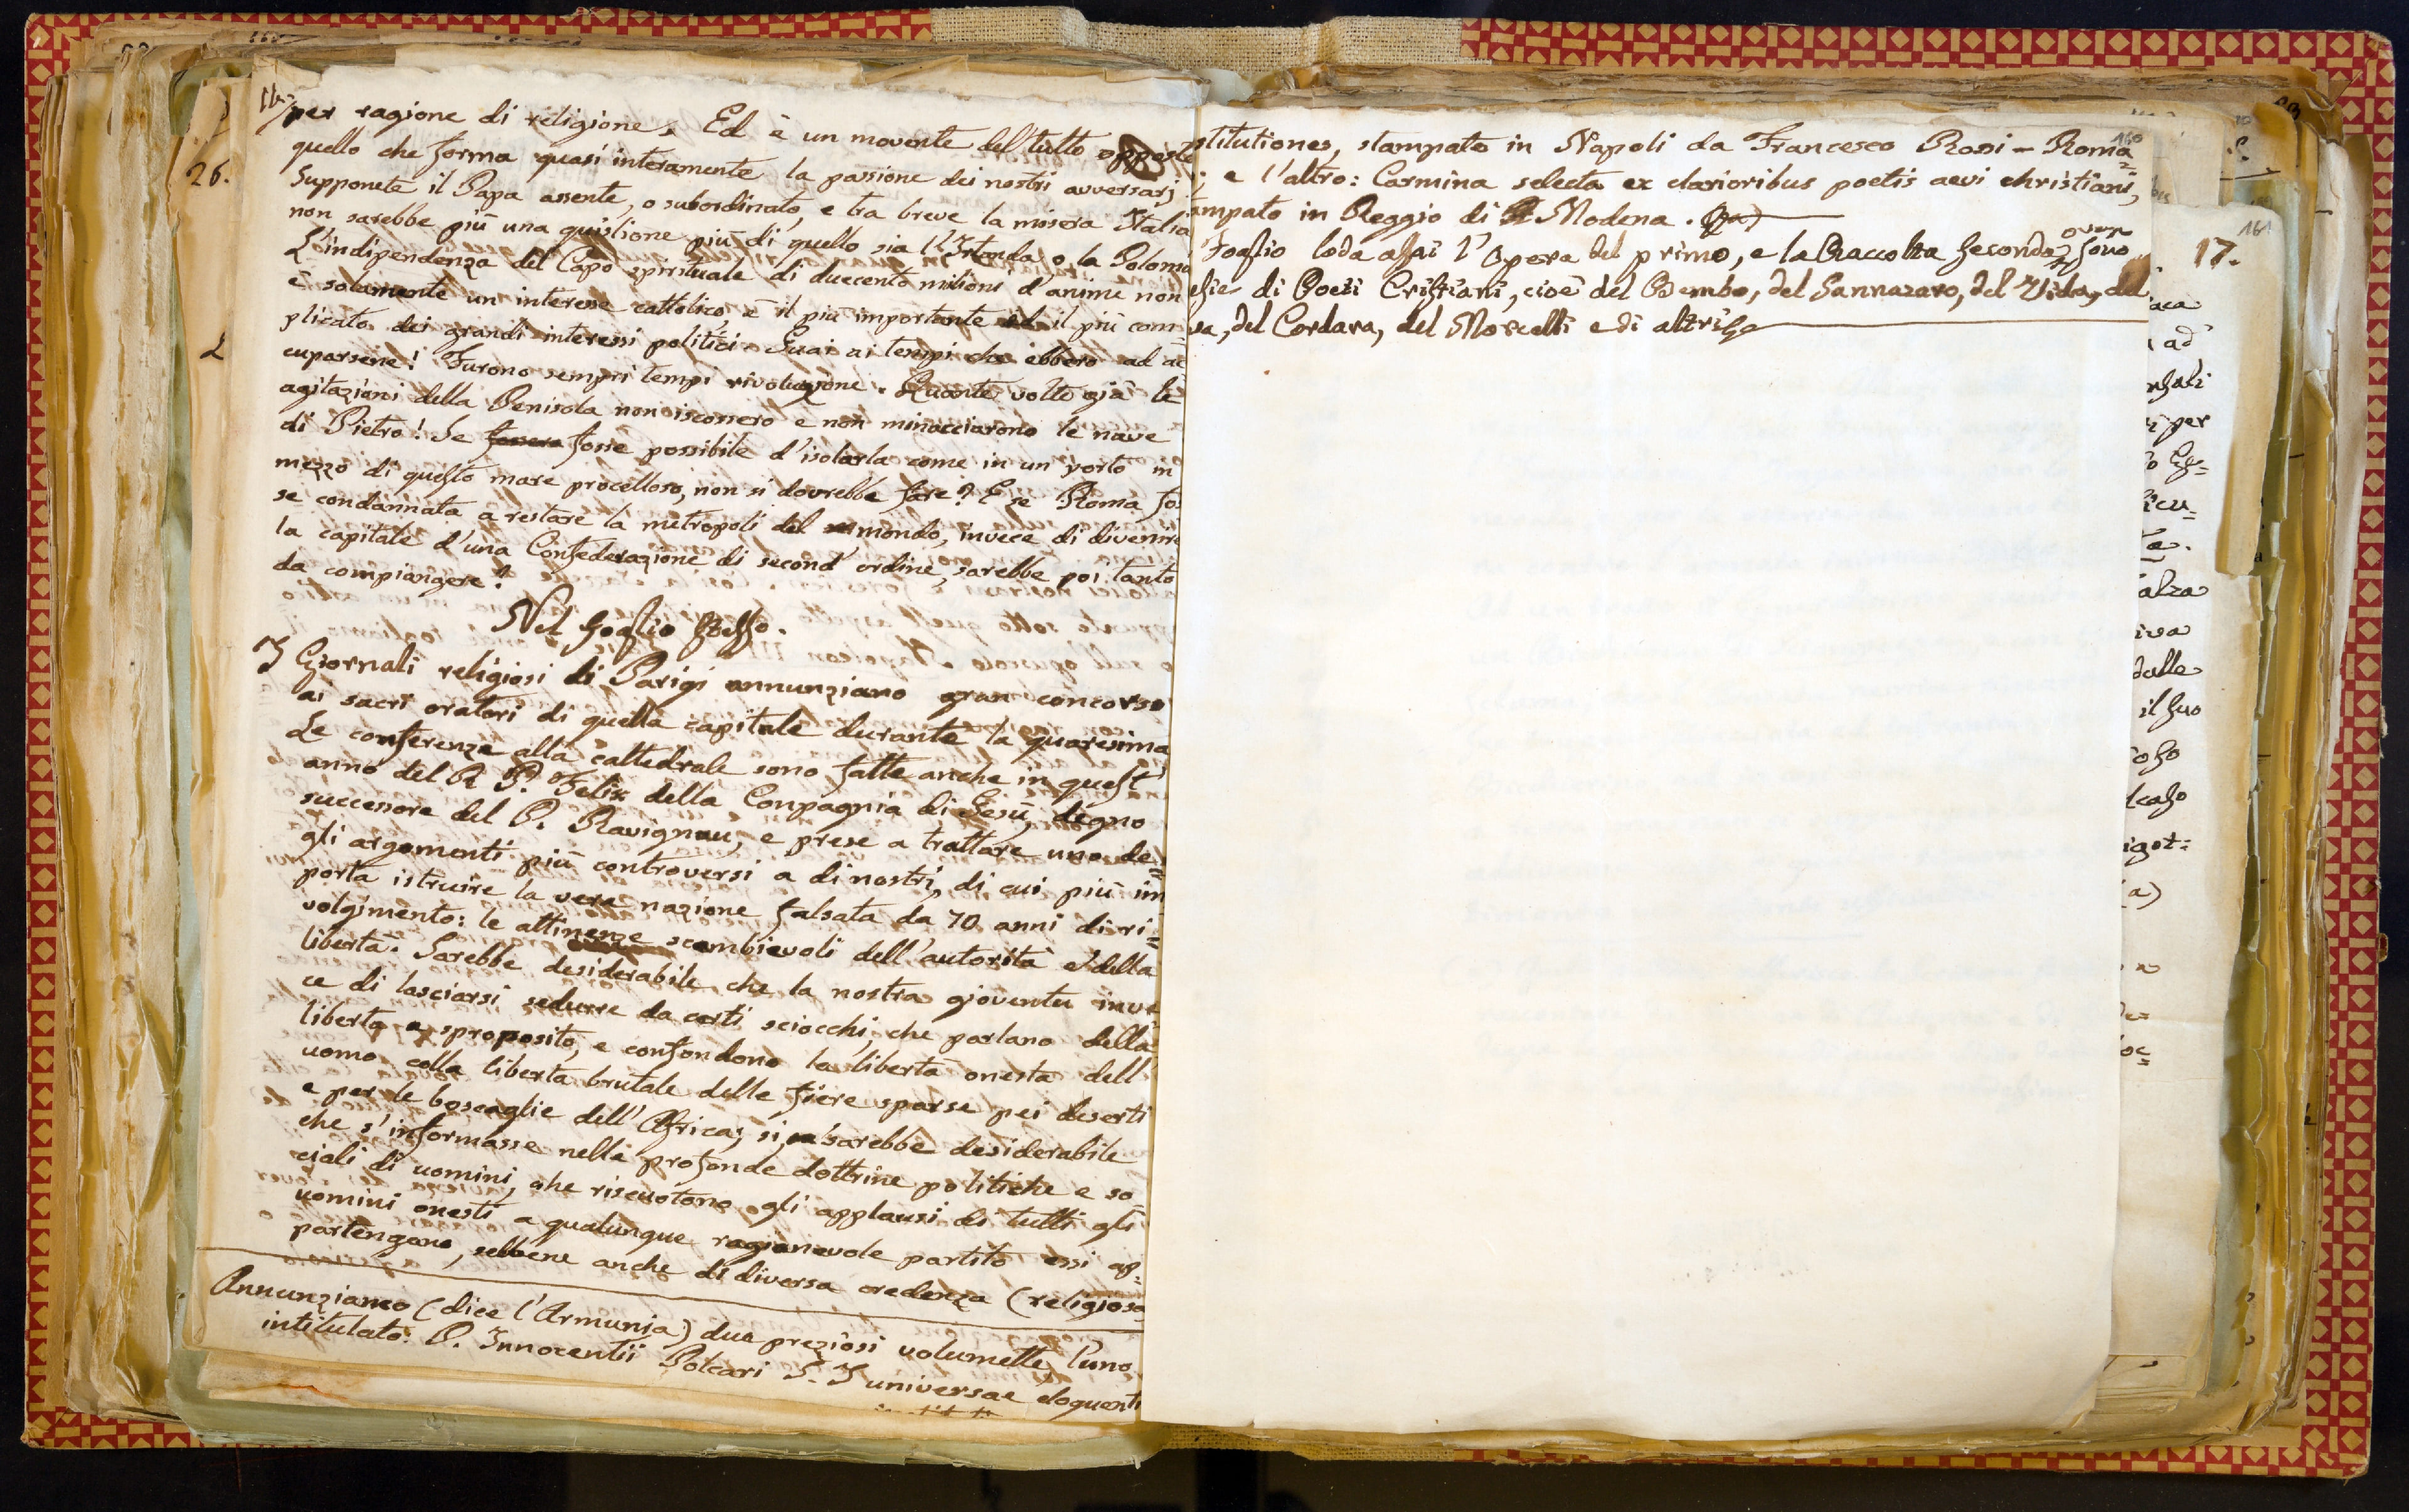 per ragione di religione. Ed è un movente del tutto opposto
quello che forma quasi interamente la passione dei nostri avversarj
Supponete il Papa assente, o subordinato, e tra breve la misera Italia
non sarebbe più una quistione più di quello sia l'Irlanda o la Polonia
L'indipendenza del Capo spirituale di duecento milioni d'anime non
è solamente un interesse cattolico, è il più importante ed il più com-
plicato dei grandi interessi politici. Guai ai tempi che ebbero ad oc
cuparsene! Furono sempri tempi rivoluzione. Quante volte già le
agitazioni della Penisola non iscossero e non minacciarono le nave
di Pietro! Se fossero fosse possibile d'isolarla come in un porto in
mezzo di questo mare procelloso, non si dovrebbe fare? E se Roma fos
se condannata a restare la metropoli del mondo, invece di divenire
la capitale d'una Confederazione di second'ordine, sarebbe poi tanto
da compiangere?
Nel foglio stesso.
I Giornali religiosi di Parigi annunziano gran concorso
ai sacri oratori di quella capitale durante la quaresima
Le conferenze alla cattedrale sono fatte anche in quest'
anno del R. P. Felix della Compagnia di Gesù, degno
successore del P. Ravignau, e prese a trattare uno de=
gli argomenti più controversi a di nostri, di cui più im
porta istruire la vera nazione falsata da 70 anni di ri=
volgimento: le attinenze scambievoli dell'autorità e della
libertà. Sarebbe desiderabile che la nostra gioventu inve
ce di lasciarsi sedurre da certi sciocchi, che parlano della
libertà a sproposito, e confondono la libertà onesta dell'
uomo colla libertà brutale delle fiere sparse pei deserti
e per le boscaglie dell'Africa; si, sarebbe desiderabile
che s'informasse nelle profonde dottrine politiche e so
ciali di uomini, che riscuotono gli applausi di tutti gli
uomini onesti a qualunque ragionevole partito essi ap=
partengano, sebbene anche di diversa credenza (religiosa
Annunziamo (dice l'Armunia) due preziosi volumette, l'uno
intitulato: P. Innocentii Polcari S. J universae eloquenti
26.
L
stitutiones, stampato in Napoli da Francesco Rossi - Roma=
; e l'altro: Carmina selecta ex clarioribus poetis aevi christiani,
ampato in Reggio di Modena.
Foglio loda assai l'Opera del primo, e la Raccolta seconda, ove sono
esie di Poeti Cristiani, cioè del Bembo, del Sannazaro, del Vida, del
sa, del Cordara, del Morcelli e di altri
160
161
17.
aca
ad
per
alza
iva
dalle
il suo
(a)